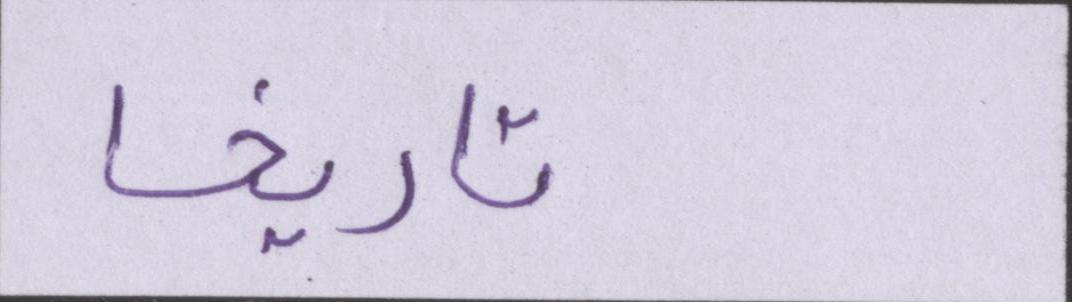 تاريخا